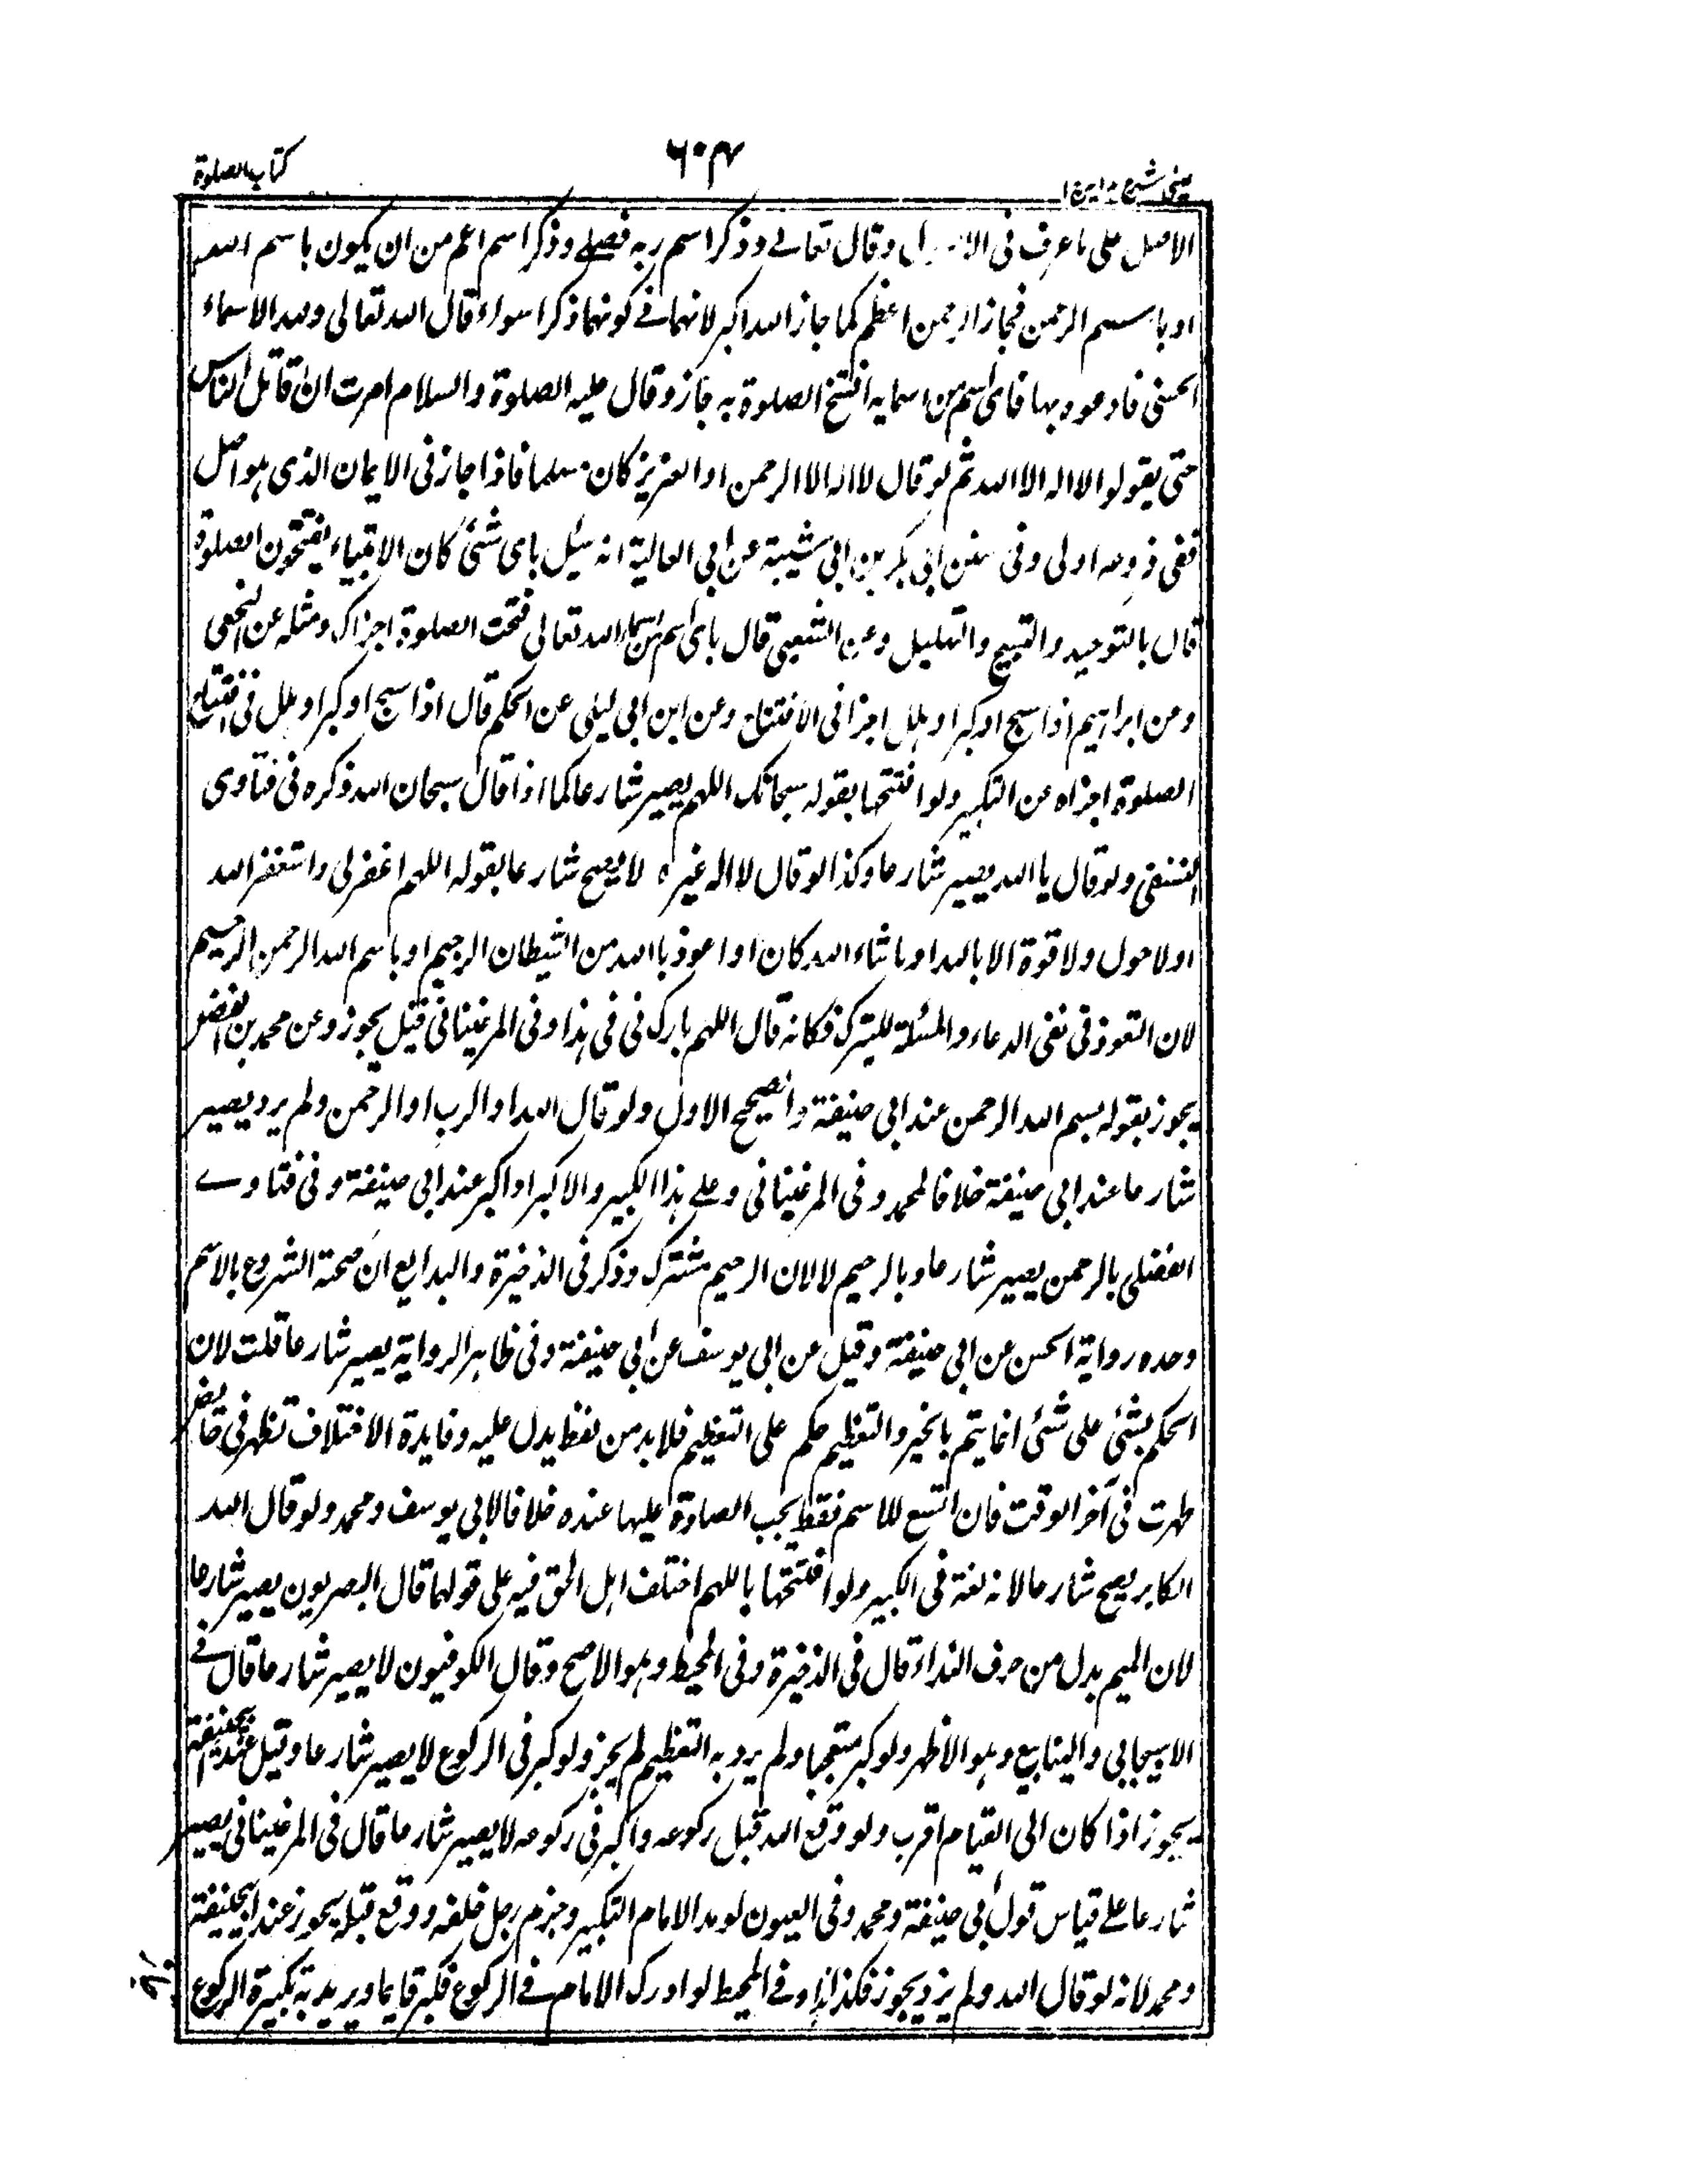 عینی شرح ہدایہ ج ۱
۶۰۴
کتاب الصلوة
الاصل علی ما عرف فی الاصول وقال تعالے وذکر اسم ربه فصلے وذکر اسم اعم من ان یکون باسم الله
او باسم الرحمن فجاز الرحمن اعظم کما جاز الله اکبر لانهما فے کونهما ذکرا سواء قال الله تعالی ولله الاسماء
الحسنی فادعوه بها فای اسم من اسمایه افتتح الصلوة به جاز وقال علیه الصلوة والسلام امرت ان اقاتل الناس
حتی یقولوا لا اله الا الله ثم لو قال لا اله الا الرحمن او العزیز کان مسلما فاذا جاز فی الایمان الذی هو اصل
ففی فروعه اولی وفی سنن ابی بکر بن ابی شیبة عن ابی العالیة انه سئل بای شئ کان الانبیاء یفتتحون الصلوة
قال بالتوحید والتسبیح والتهلیل وعن الشعبی قال بای اسم من اسماء الله تعالی فتحت الصلوة اجزاک ومثله عن النخعی
وعن ابراهیم اذا سبح او کبر او هلل اجزا فی الافتتاح وعن ابن ابی لیلی عن الحکم قال اذا سبح او کبر او هلل فی افتتاح
الصلوة اجزاه عن التکبیر ولو افتتحها بقوله سبحانک اللهم یصیر شارعا کما اذا قال سبحان الله ذکره فی فتاوی
النسفی ولو قال یا الله یصیر شارعا وکذا لو قال لا اله غیره لا یصح شارعا بقوله اللهم اغفر لی واستغفر الله
او لا حول ولا قوة الا بالله او ما شاء الله کان او اعوذ باالله من الشیطان الرجیم او باسم الله الرحمن الرحیم
لان التعوذ فی نفی الدعاء والمسئلة للتبرک فکانه قال اللهم بارک فی فی هذا وفی المرغینانی قیل یجوز وعن محمد بن الفضل
یجوز بقوله بسم الله الرحمن عند ابی حنیفة والصحیح الاول ولو قال الله او الرب او الرحمن ولم یرد یصیر
شارعا عند ابی حنیفة خلافا لمحمد وفی المرغینانی وعلے هذا الکبیر والاکبر او اکبر عند ابی حنیفة وفی فتاوے
الفضلی بالرحمن یصیر شارعا وبالرحیم لا لان الرحیم مشترک وذکر فی الذخیرة والبدایع ان صحة الشروع بالاسم
وحده روایة الحسن عن ابی حنیفة وقیل عن ابی یوسف عن ابی حنیفة وفی ظاهر الروایة یصیر شارعا قلت لان
الحکم بشئی علی شئی انما یتم بالخبر والتعظیم حکم علی التعظیم فلابد من لفظ یدل علیه وفایدة الاختلاف تظهر فی حایض
طهرت فی آخر الوقت فان اتسع للاسم فقط یجب الصلوة علیها عنده خلافا لابی یوسف ومحمد ولو قال الله
الکابر یصح شارعا لانه لغة فی الکبیر ولو افتتحها باللهم اختلف اهل الحق فیه علی قولهما قال البصریون یصیر شارعا
لان المیم بدل من حرف النداء قال فی الذخیرة وفی المحیط وهو الاصح وقال الکوفیون لا یصیر شارعا قال فے
الاسبیجابی والینابیع وهو الاظهر ولو کبر متعجبا ولم یرد به التعظیم لم یجز ولو کبر فی الرکوع لا یصیر شارعا وقیل عند ابی حنیفة
یجوز اذا کان الی القیام اقرب ولو وقع الله قبل رکوعه واکبر فی رکوعه لا یصیر شارعا قال فی المرغینانی یصیر
شارعا علے قیاس قول ابی حنیفة ومحمد وفی العیون لو مد الامام التکبیر وجزم رجل خلفه ووقع قبله یجوز عند ابی حنیفة
ومحمد لانه لو قال الله ولم یزد یجوز فکذا هذا وفے المحیط لو ادرک الامام فے الرکوع فکبر قایما ویرید به تکبیرة الرکوع